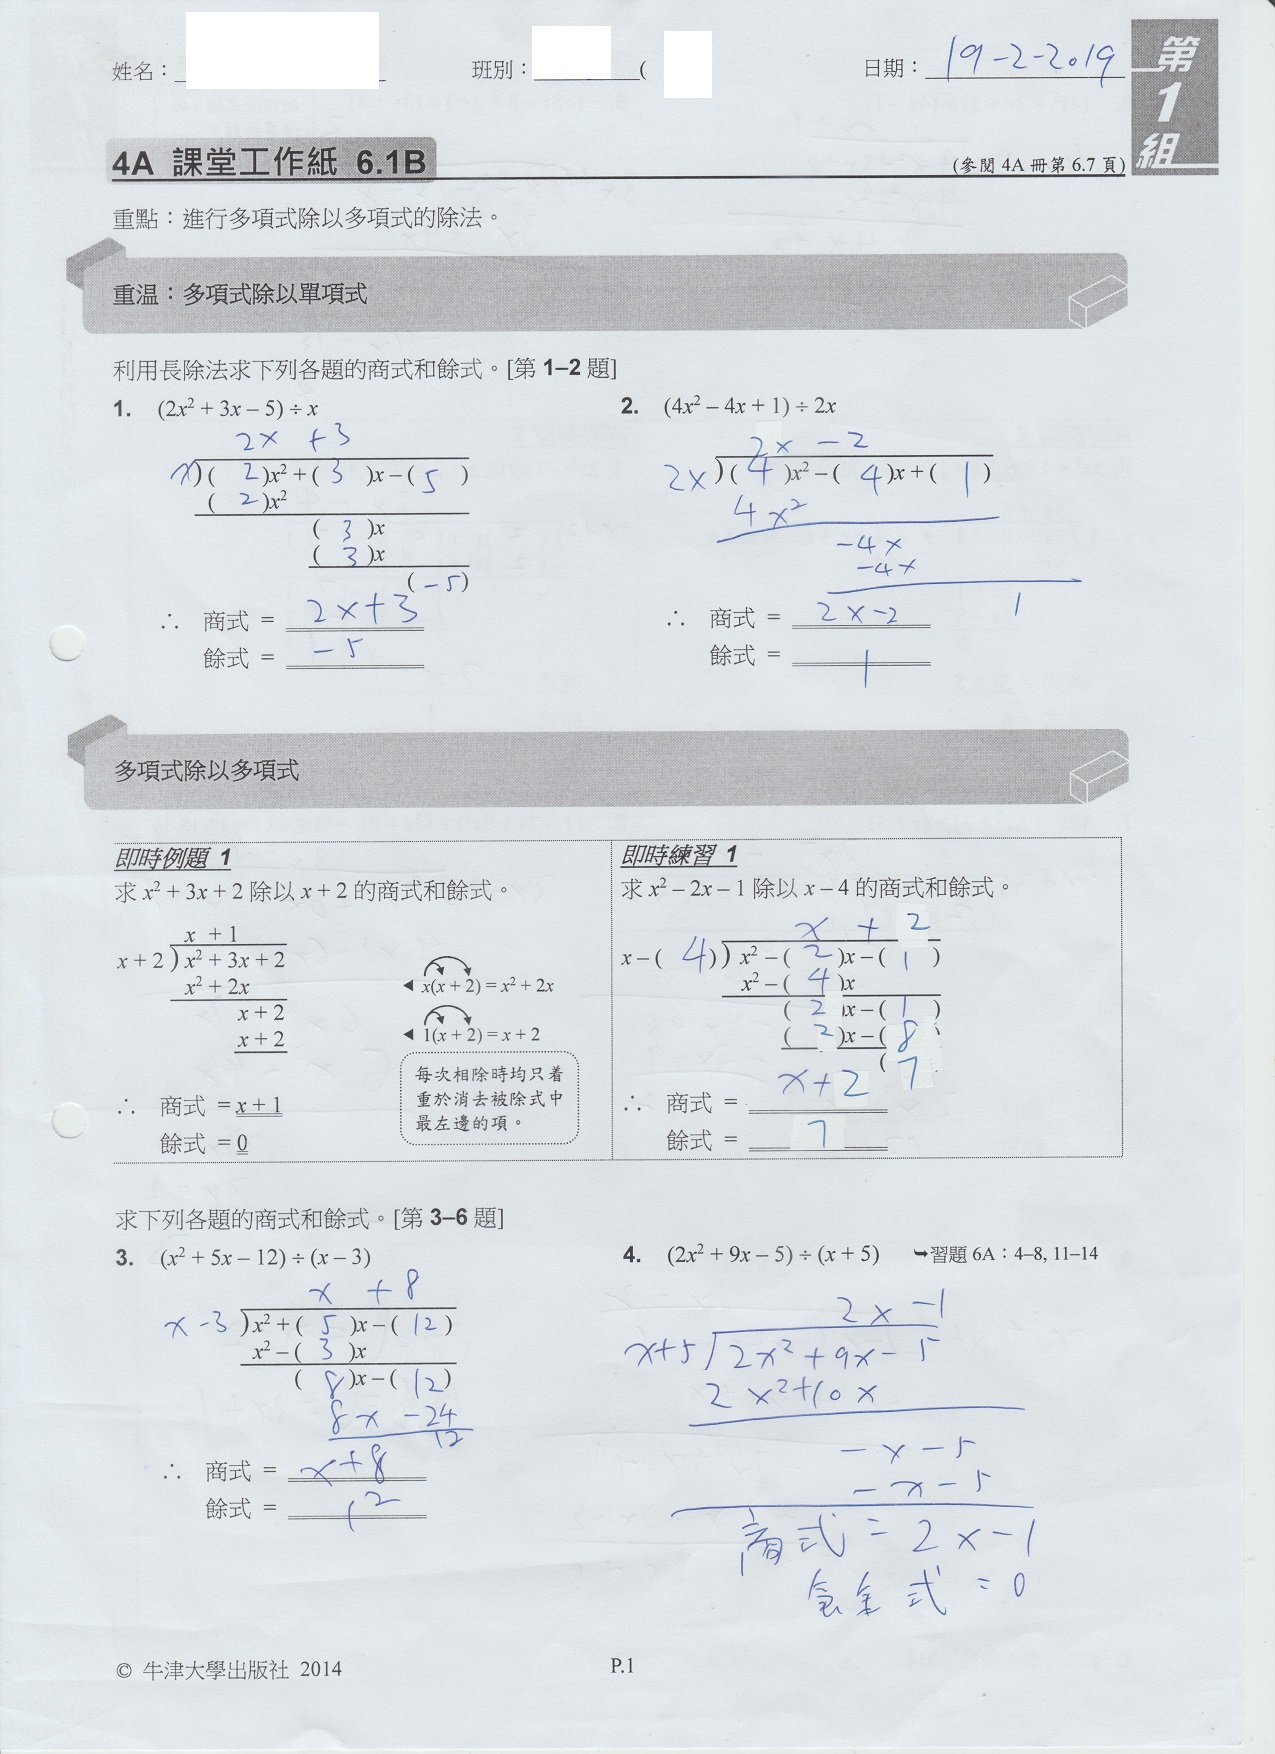 姓名：
班別： (
日期： 19-2-2019
第1組
4A 課堂工作紙 6.1B
(參閱 4A 冊第 6.7 頁)
重點：進行多項式除以多項式的除法。
重温：多項式除以單項式
利用長除法求下列各題的商式和餘式。[第 1–2 題]
1. (2x² + 3x – 5) ÷ x
2x +3
x)( 2 )x² + ( 3 )x – ( 5 )
( 2 )x²
( 3 )x
( 3 )x
( -5 )
∴ 商式 = 2x+3
餘式 = -5
2. (4x² – 4x + 1) ÷ 2x
2x -2
2x)( 4 )x² – ( 4 )x + ( 1 )
4x²
-4x
-4x
1
∴ 商式 = 2x-2
餘式 = 1
多項式除以多項式
即時例題 1
求 x² + 3x + 2 除以 x + 2 的商式和餘式。
x + 1
x + 2)x² + 3x + 2
x² + 2x
◄ x(x + 2) = x² + 2x
x + 2
x + 2
◄ 1(x + 2) = x + 2
每次相除時均只着
重於消去被除式中
最左邊的項。
∴ 商式 = x + 1
餘式 = 0
即時練習 1
求 x² – 2x – 1 除以 x – 4 的商式和餘式。
x + 2
x – ( 4 ))x² – ( 2 )x – ( 1 )
x² – ( 4 )x
( 2 )x – ( 1 )
( 2 )x – ( 8 )
( 7
∴ 商式 = x+2
餘式 = 7
求下列各題的商式和餘式。[第 3–6 題]
3. (x² + 5x – 12) ÷ (x – 3)
x +8
x -3)x² + ( 5 )x – ( 12 )
x² – ( 3 )x
( 8 )x – ( 12 )
8x -24
12
∴ 商式 = x+8
餘式 = 12
4. (2x² + 9x – 5) ÷ (x + 5) ➥習題 6A：4–8, 11–14
2x -1
x+5)2x²+9x-5
2x²+10x
-x-5
-x-5
商式 = 2x-1
餘式 = 0
© 牛津大學出版社 2014
P.1